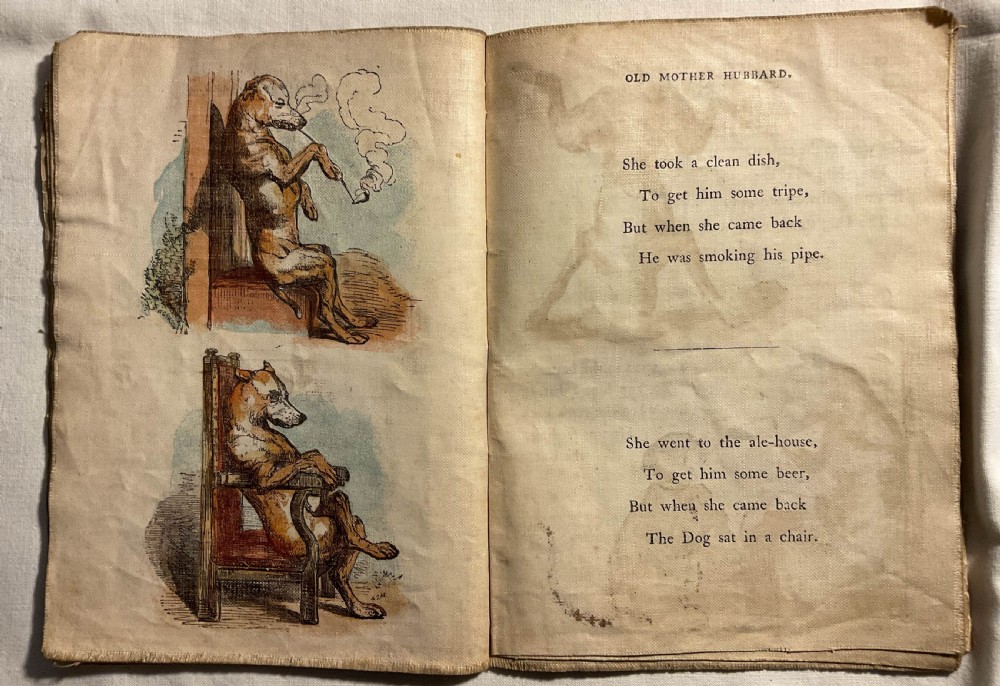 OLD MOTHER HUBBARD.
She took a clean dish,
To get him some tripe,
But when she came back
He was smoking his pipe.
She went to the ale-house,
To get him some beer,
But when she came back
The Dog sat in a chair.